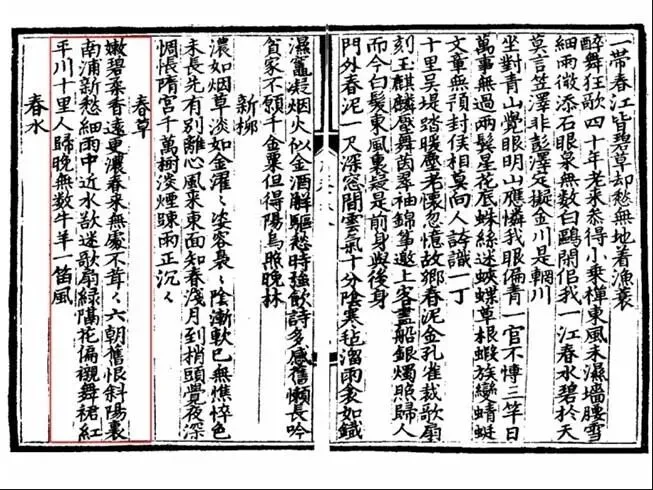 一帶春江皆碧草却愁無地着漁蓑
醉舞狂歌四十年老來叅得小乘禪東風未濕墻腰雪
細雨微添石眼泉無數白鷗閑侣我一江春水碧扵天
莫言笠澤非彭澤定擬金川是輞川
坐對青山覺眼明山應憐我眼偏青一官不博三竿日
萬事無過兩髩星花底蛛絲迷蛺蝶草根蝦族變蜻蜓
文章無封侯相莫向人誇識一丁
十里吳堤踏暖塵老懷忽憶故鄉春泥金孔雀裁歌扇
刻玉麒麟壓舞茵翠袖錦箏邀上客畫船銀燭照歸人
而今白髮東風裏疑是前身與後身
門外春泥一尺深忽聞雲氣十分陰寒毡溜雨衾如鐵
濕竈凝烟火似金酒解驅愁時強飲詩多感舊懶長吟
貧家不願千金粟但得陽烏照晚林
新柳
濃如烟草淡如金濯〻姿容裊〻陰漸軟已無憔悴色
未長先有別離心風來東面知春淺月到梢頭覺夜深
惆悵隋宮千萬樹淡煙疎雨正沉〻
春草
嫩碧柔香遠更濃春來無處不茸〻六朝舊恨斜陽裏
南浦新愁細雨中近水欲迷歌扇綠隔花偏襯舞裙紅
平川十里人歸晚無數牛羊一笛風
春水